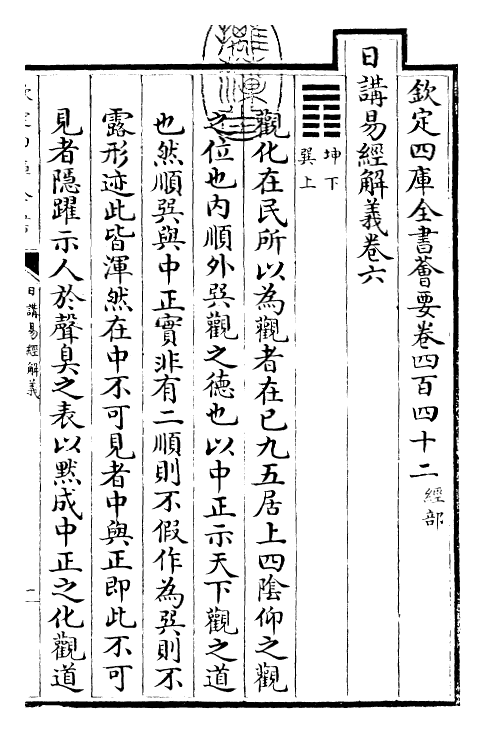 欽定四庫全書薈要卷四百四十二 經部
日講易經解義卷六
坤下
巽上
觀化在民所以為觀者在已九五居上四陰仰之觀
之位也内順外巽觀之徳也以中正示天下觀之道
也然順巽與中正實非有二順則不假作為巽則不
露形迹此皆渾然在中不可見者中與正即此不可
見者隠躍示人於聲臭之表以黙成中正之化觀道
日講易經解義